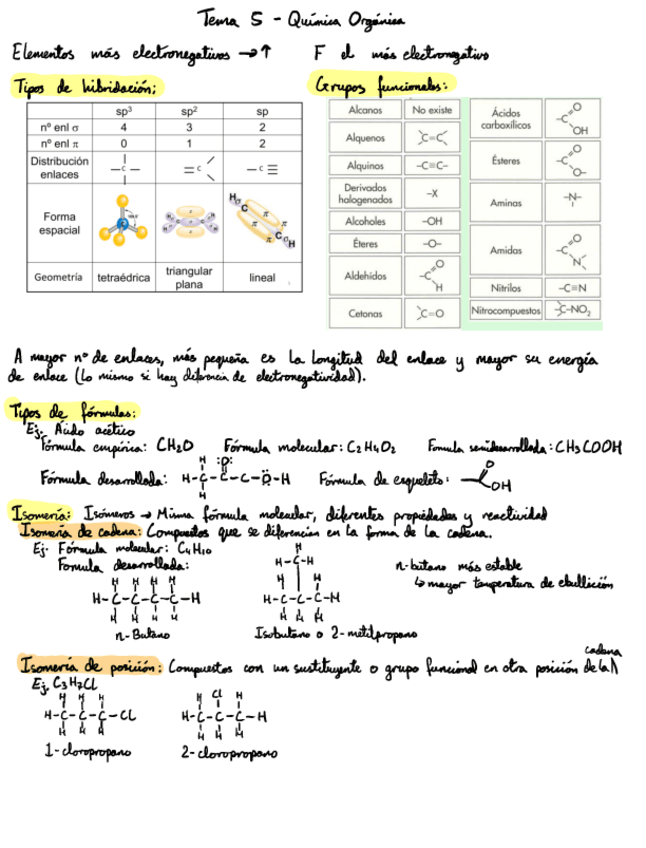 Tema 5 - Química Orgánica
Elementos más electronegativos → ↑ F el más electronegativo
Tipos de hibridación:
sp³ sp² sp
nº enl σ 4 3 2
nº enl π 0 1 2
Distribución enlaces
Forma espacial
Geometría tetraédrica triangular plana lineal
Grupos funcionales:
Alcanos No existe
Alquenos C=C
Alquinos -C≡C-
Derivados halogenados -X
Alcoholes -OH
Éteres -O-
Aldehídos -C O H
Cetonas C=O
Ácidos carboxílicos -C O OH
Ésteres -C O O-
Aminas -N-
Amidas -C O N
Nitrilos -C≡N
Nitrocompuestos -C-NO₂
A mayor nº de enlaces, más pequeña es la longitud del enlace y mayor su energía
de enlace (lo mismo si hay diferencia de electronegatividad).
Tipos de fórmulas:
Ej. Ácido acético
Fórmula empírica: CH₂O Fórmula molecular: C₂H₄O₂ Fomula semidesarrollada: CH₃COOH
Fórmula desarrollada: H-C-C-C-O-H Fórmula de esqueleto: O OH
Isomería: Isómeros → Misma fórmula molecular, diferentes propiedades y reactividad
Isomería de cadena: Compuestos que se diferencian en la forma de la cadena.
Ej. Fórmula molecular: C₄H₁₀
Formula desarrollada:
H-C-C-C-C-H
n-Butano
H-C-H
H-C-C-C-H
Isobutano o 2-metilpropano
n-butano más estable
↳ mayor temperatura de ebullición
Isomería de posición: Compuestos con un sustituyente o grupo funcional en otra posición de la cadena
Ej. C₃H₇Cl
H-C-C-C-Cl
1-cloropropano
Cl
H-C-C-C-H
2-cloropropano